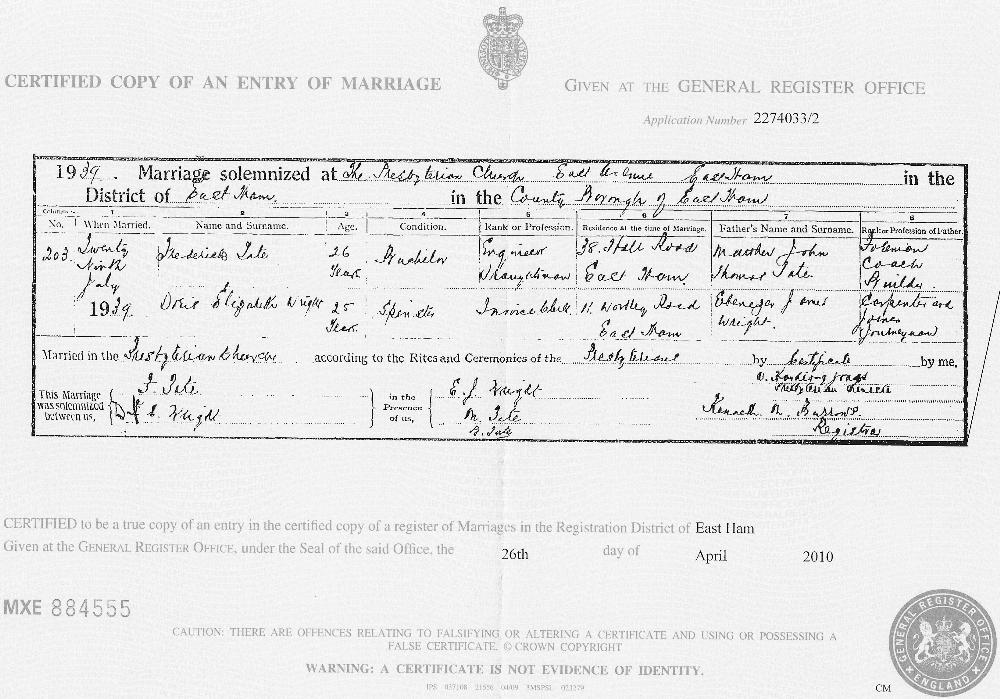 CERTIFIED COPY OF AN ENTRY OF MARRIAGE
GIVEN AT THE GENERAL REGISTER OFFICE
Application Number 2274033/2
1939. Marriage solemnized at The Presbyterian Church East Avenue East Ham in the
District of East Ham in the County Borough of East Ham
Columns:— 1 2 3 4 5 6 7 8
No. When Married. Name and Surname. Age. Condition. Rank or Profession. Residence at the time of Marriage. Father's Name and Surname. Rank or Profession of Father.
203 Twenty Ninth July 1939 Frederick Tate 26 Years Bachelor Engineer Draughtsman 38 Road East Ham Matthew John Thomas Tate Foreman Coach Builder
Doris Elizabeth Wright 25 Years Spinster Invoice Clerk Wortley Road East Ham Ebenezer James Wright Carpenter and Joiner Journeyman
Married in the Presbyterian Church according to the Rites and Ceremonies of the Presbyterians by Certificate by me,
This Marriage was solemnized between us,
F. Tate
D. E. Wright
in the Presence of us,
E. J. Wright
M. Tate
B. Tate
Presbyterian Church
Kenneth M. Burrows
Registrar
CERTIFIED to be a true copy of an entry in the certified copy of a register of Marriages in the Registration District of East Ham
Given at the GENERAL REGISTER OFFICE, under the Seal of the said Office, the 26th day of April 2010
MXE 884555
CAUTION: THERE ARE OFFENCES RELATING TO FALSIFYING OR ALTERING A CERTIFICATE AND USING OR POSSESSING A
FALSE CERTIFICATE. © CROWN COPYRIGHT
WARNING: A CERTIFICATE IS NOT EVIDENCE OF IDENTITY.
GENERAL REGISTER OFFICE
ENGLAND
CM